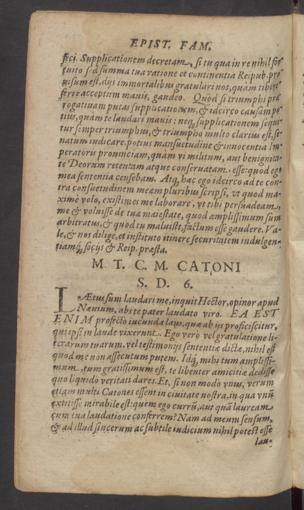 EPIST. FAM.
feci. Supplicationem decretam, si tu qua in re nihil for
tuitò sed summa tua ratione et continentia Reipub. pro
uisum est, dijs immortalibus gratulari nos, quàm tibi re
ferre acceptum mauis, gaudeo. Quòd si triumphi præ
rogatiuam putas supplicationem, & idcirco casum po
tius, quàm te laudari mauis: neq; supplicationem sequi
tur semper triumphus, & triumpho multo clarius est, se
natum iudicare, potius mansuetudine & innocentia im
peratoris prouinciam, quàm vi militum, aut benignita
te Deorum retentam atque conseruatam esse: quod ego
mea sententia censebam. Atq; hæc ego idcirco ad te con
tra consuetudinem meam pluribus scripsi, vt quod ma
ximè volo, existimes me laborare, vt tibi persuadeam,
me & voluisse de tua maiestate, quod amplissimum sim
arbitratus, & quod tu maluisti, factum esse gaudere. Va
le, & nos dilige, et instituto itinere seueritatem indulgen
tiamq́; socijs & Reip. præsta.
M. T. C. M. CATONI
S. D. 6.
LÆtus sum laudari me, inquit Hector, opinor apud
Næuium, abs te pater laudato viro. EA EST
ENIM profectò iucunda laus, quæ ab ijs proficiscitur,
qui ipsi in laude vixerunt. Ego verò vel gratulatione li
terarum tuarum, vel testimonijs sententiæ dictæ, nihil est
quod me non assecutum putem. Idq; mihi tum amplissi-
mum, tum gratissimum est, te libenter amicitiæ dedisse
quo liquidò veritati dares. Et, si non modò vnus, verum
etiam multi Catones essent in ciuitate nostra, in qua vnū
extitisse mirabile est: quem ego currū, aut quā lauream
cum tua laudatione conferrem? Nam ad meum sensum,
& ad illud syncerum ac subtile iudicium nihil potest esse
lau-